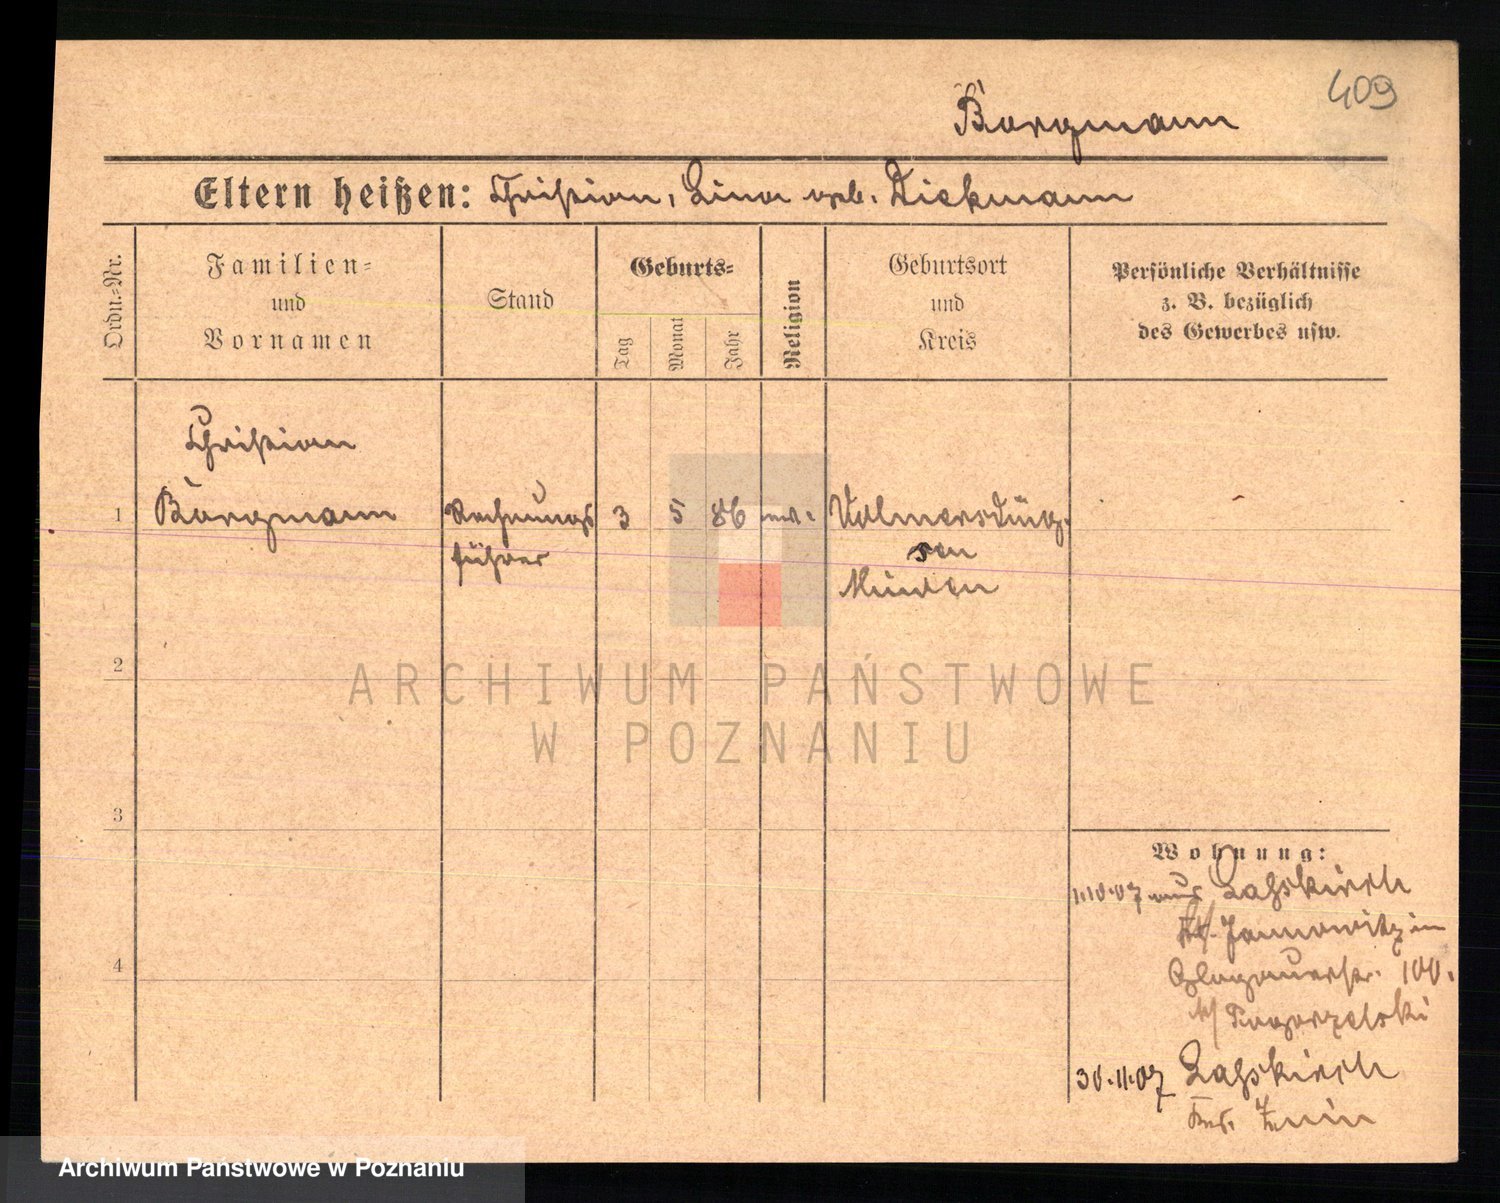 409
Borgmann
Eltern heißen: Christian, Lina geb. Dickmann
Ordn.-Nr.
Familien-
und
Vornamen
Stand
Geburts-
Tag
Monat
Jahr
Religion
Geburtsort
und
Kreis
Persönliche Verhältnisse
z. B. bezüglich
des Gewerbes usw.
Christian
1 Borgmann Rechnungs 3 5 86 Volmersdingsen
führer
Minden
2
3
4
Wohnung:
1.10.07 aus Lahskirch
Kr. Jannowitz in
Glogauerstr. 100.
b/ Pogorzelski
30.11.07 Lahskirch
Krs. Znin
ARCHIWUM PAŃSTWOWE
W POZNANIU
Archiwum Państwowe w Poznaniu